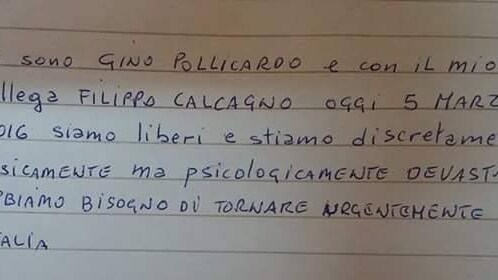 SONO GINO POLLICARDO e CON iL MiO
llega FILIPPO CALCAGNO OGGI 5 MARZ
016 siamo liberi e stiamo discretame
SICAMENTE ma psicologicamente DEVAST
BIAMO BISOGNO DI TORNARE URGENTEMENTE
TALIA